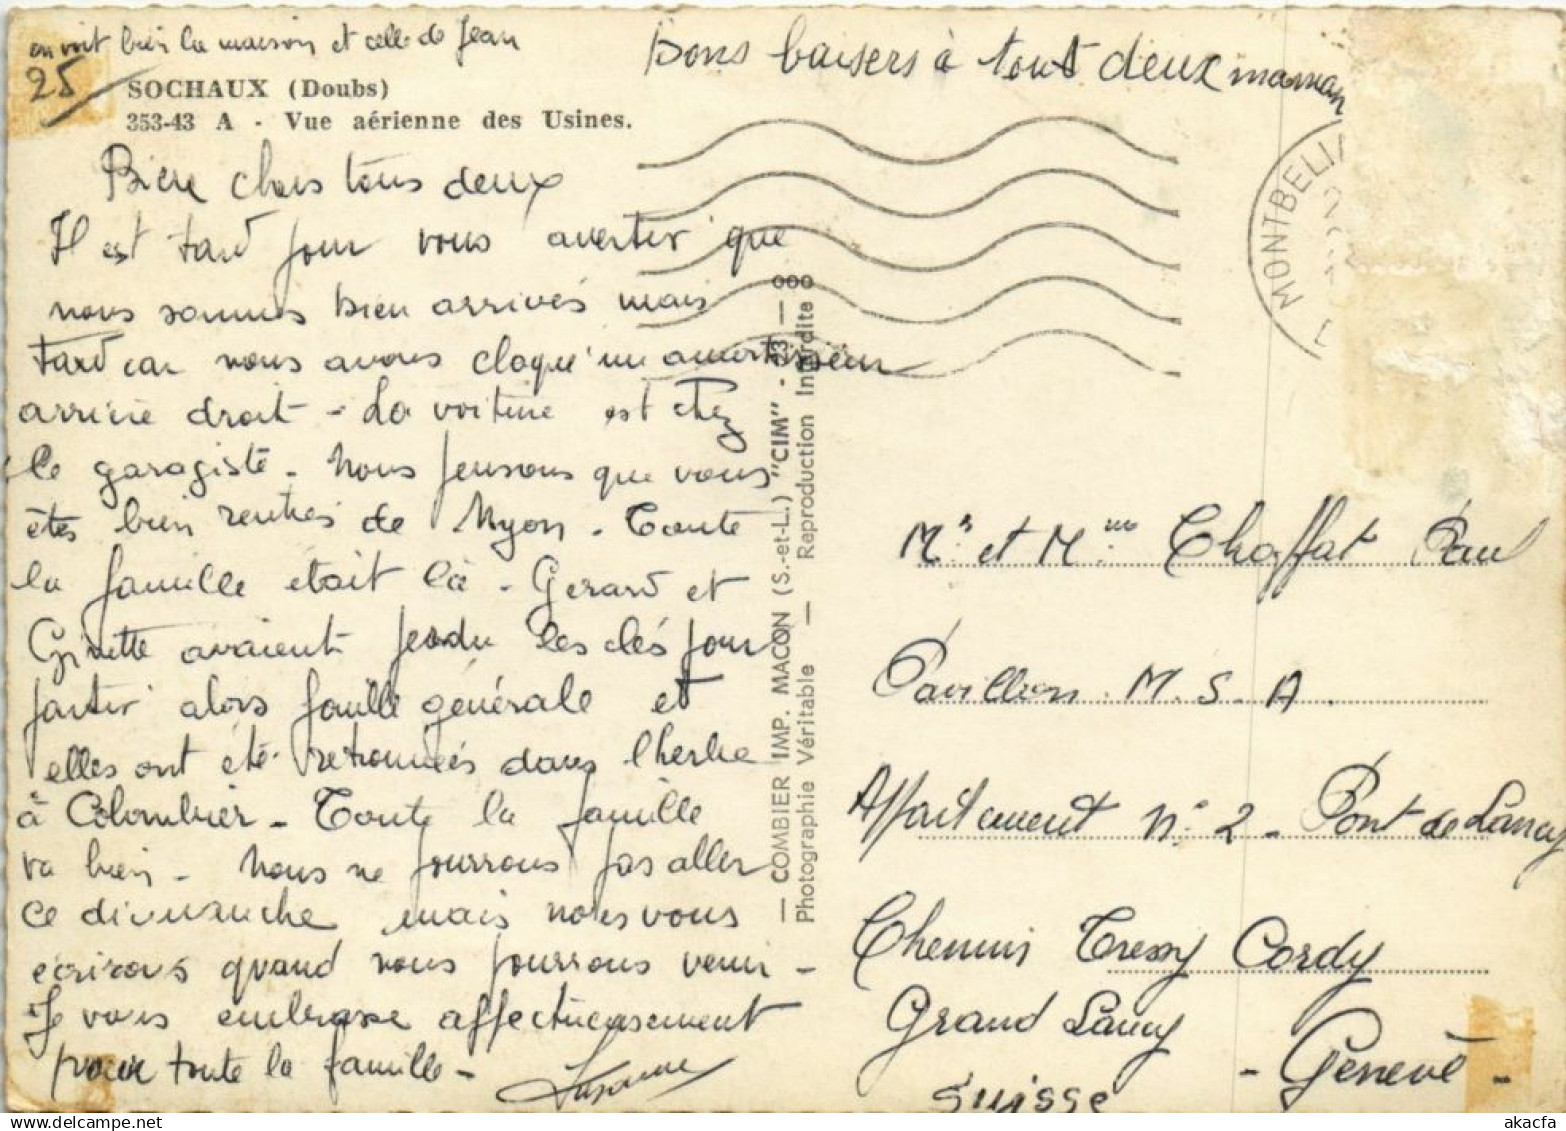 on voit bien la maison et celle de Jean
25
SOCHAUX (Doubs)
353-43 A - Vue aérienne des Usines.
Bons baisers à tout deux maman
Bien chers tous deux
Il est tard pour vous avertir que
nous sommes bien arrivés mais
tard car nous avons claqué un amortisseur
arrière droit - La voiture est chez
le garagiste - Nous pensons que vous
êtes bien rentrés de Nyon - Toute
la famille était là - Gerard et
Ginette avaient perdu les clés pour
partir alors fouille générale et
elles ont été retrouvées dans l'herbe
à Colombier - Toute la famille
va bien - Nous ne pourrons pas aller
ce dimanche mais nous vous
écrirons quand nous pourrons venir -
Je vous embrasse affectueusement
pour toute la famille -
Suzanne
— COMBIER IMP. MACON (S.-et-L.) "CIM" - 43 — ooo
Photographie Véritable — Reproduction Interdite
MONTBELIA
Mr. et Mme Chaffat Paul
Pavillon M.S.A.
Appartement N° 2 - Pont de Lancy
Chemin Tressy Cordy
Grand Lancy
- Genève -
Suisse
akacfa
akacfa.com